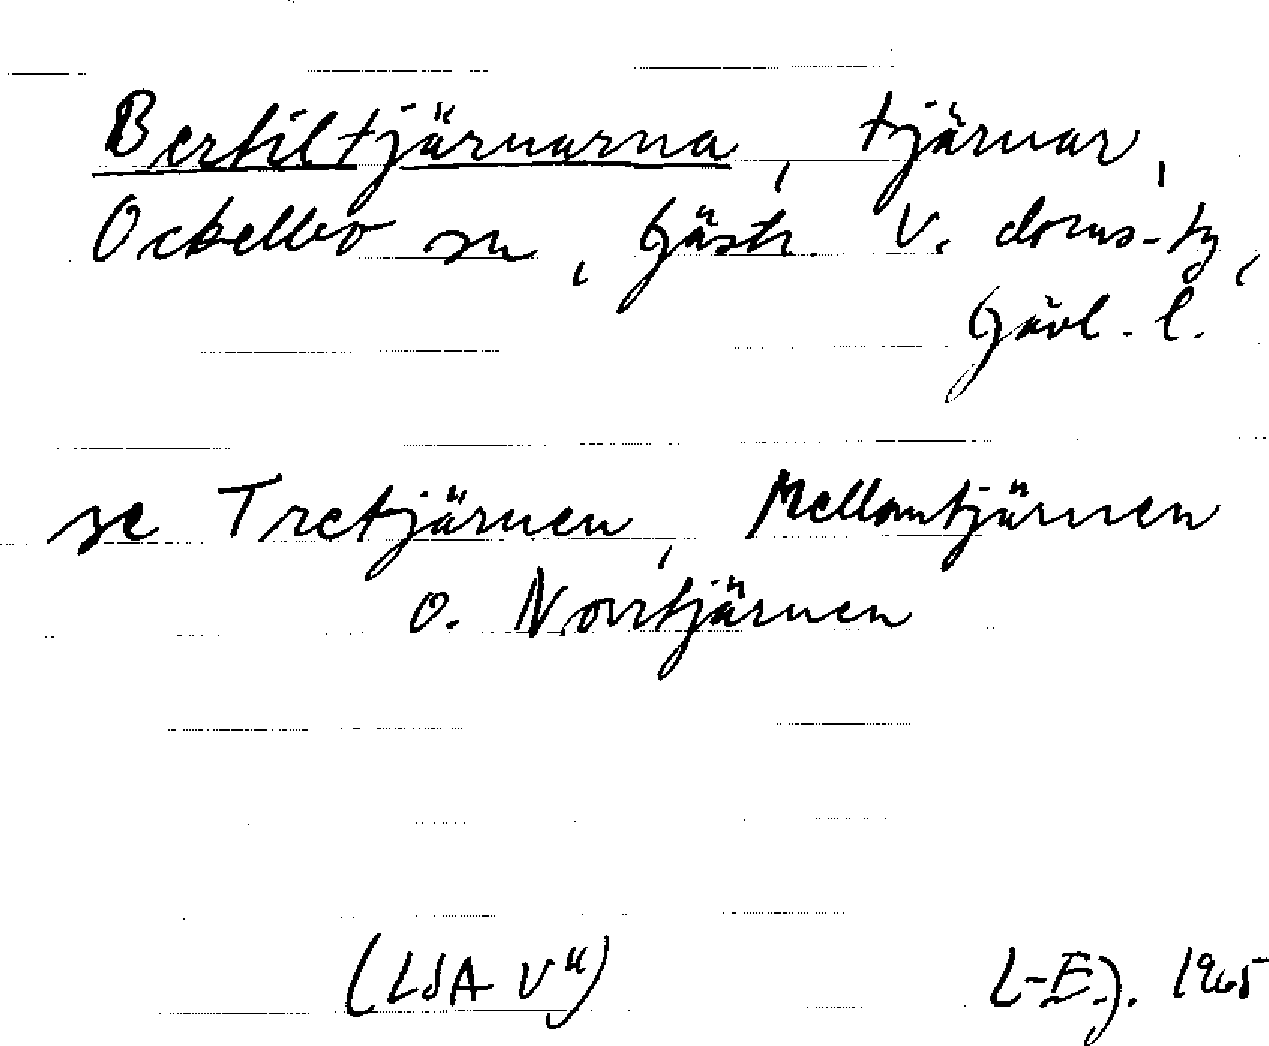 Bertiltjärnarna, tjärnar,
Ockelbo sn, Gästr. V. doms-tg,
Gävl. l.
se Tretjärnen, Mellantjärnen
o. Norrtjärnen
(LSA V")
L-EJ. 1965